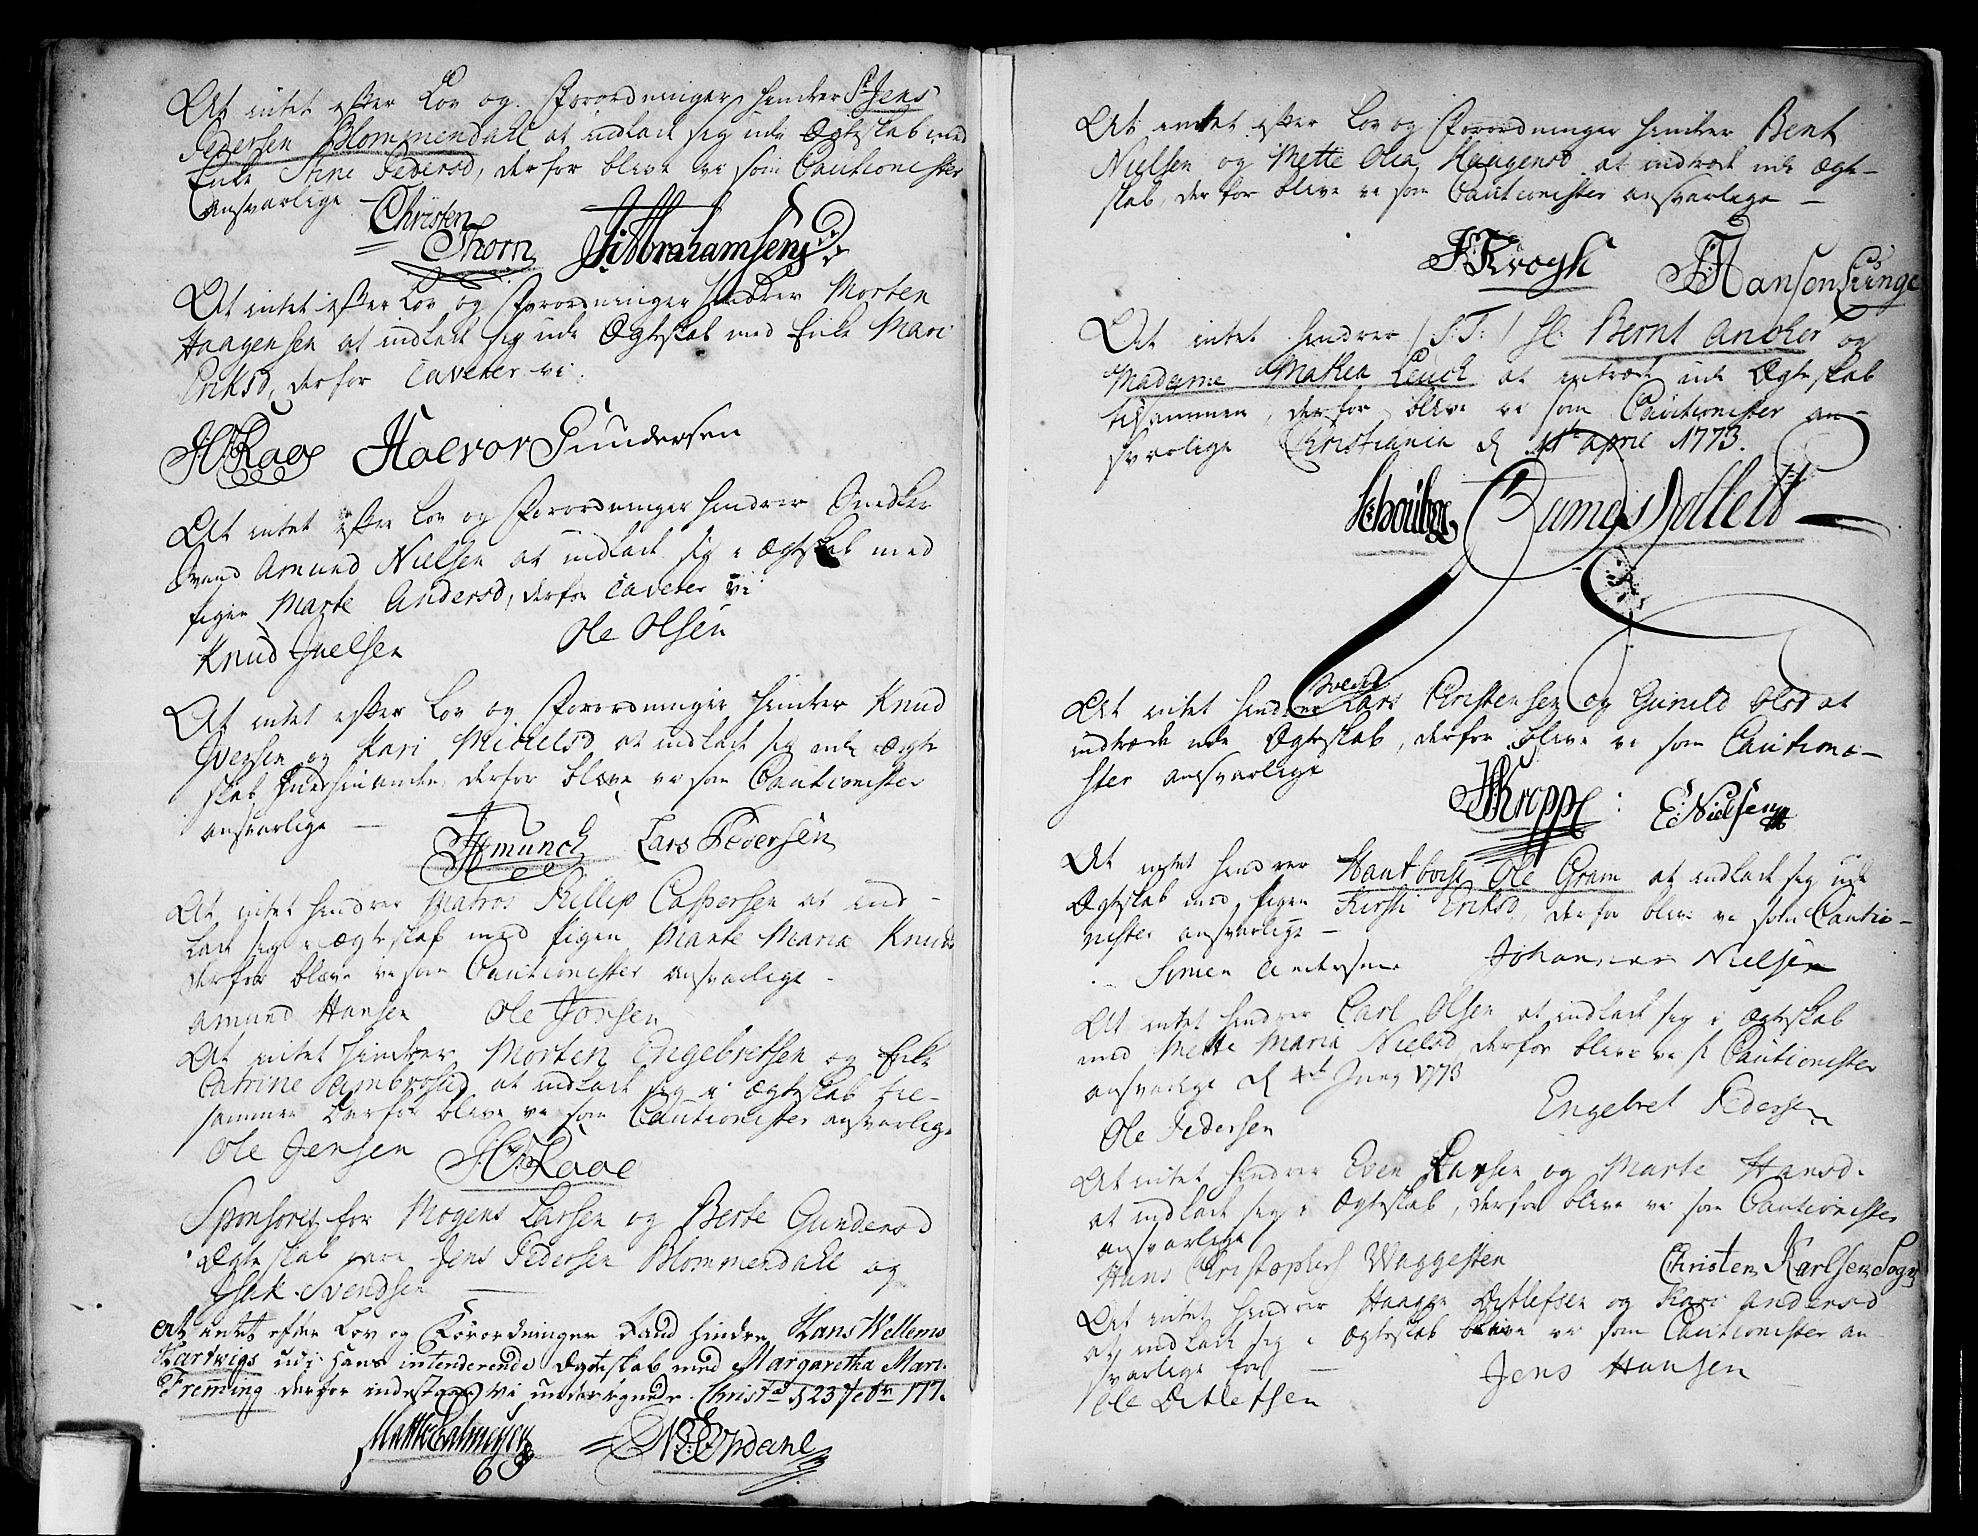 At intet efter Lov og Forordninger hindrer Sr Jens
Pedersen Blommendall at indlade sig udi Ægteskab med
Enke Stine Pedersd, derfor blive vi som Cautionister
ansvarlige
Christen
Thorn J: Abrahamsen
At intet efter Lov og Forordninger hindrer Morten
Haagensen at indlade sig udi Ægteskab med Enke Mari
Eriksd, derfor caverer vi
Halvor Gundersen
At intet efter Lov og Forordninger hindrer Snedker
Svend Amund Nielsen at indlade sig i Ægteskab med
Pigen Marte Andersd, derfor caverer vi
Knud Juelsen Ole Olsen
At intet efter Lov og Forordninger hindrer Knud
Iversen og Kari Michelsd at indlade sig udi Ægte
skab derfor blive vi som Cautionister
ansvarlige —
Munch Lars Pedersen
At intet hindrer Matros Fillip Caspersen at ind-
lade sig i Ægteskab med Pigen Marte Maria Knuds
derfor blive vi som Cautionister ansvarlige -
Amund Hansen Ole Jonsen
At intet hindrer Morten Engebretsen og Enke
Catrine Ambrosd at indlade sig i Ægteskab til-
sammen derfor blive vi som Cautionister ansvarlige
Ole Jensen
Sponsores for Mogens Larsen og Berte Gundersd
Ægteskab ere Jens Pedersen Blommendall og
Isak Svendsen
At intet efter Lov og Forordninger kand hindre Hans Wellems
Hartwigs udi hans intenderende Ægteskab med Margaretha Mari
Fremming derfor indestaar vi undersignede. Christa d 23 Febr 177.
At intet efter Lov og Forordninger hindrer Bent
Nielsen og Mette Olea Haagensd at indtræde udi Ægte-
skab, derfor blive vi som Cautionister ansvarlige —
Krogh Hansen Lunge
At intet hindrer /S:T:/ Hr: Bernt Ancker og
Madame Mathea Leuch at indtræde udi Ægteskab
tilsammen, derfor blive vi som Cautionister an-
svarlige Christiania d 1te april 1773.
James Collett
At intet hindrer Svend Lars Christensen og Gunild Olsd at
indtræde udi Ægteskab, derfor blive vi som Cautioni-
ster ansvarlige
Kropp E: Nielsen
At intet hindrer Hautboist Ole Gram at indlade sig udi
Ægteskab med Pigen Kirsti Eriksd, derfor blive vi som Cautio-
nister ansvarlige —
Simen Andersen Johannes Nielsen
At intet hindrer Carl Olsen at indlade sig i Ægteskab
med Mette Maria Nielsd derfor blive vi s Cautionister
ansvarlige d 4de Juny 1773
Ole Pedersen Engebret Pedersen
At intet hindrer Even Larsen og Marte Hansd.
at indlade sig i Ægteskab, derfor blive vi som Cautionister
ansvarlige
Hans Christopher Waggesten Christen Karlsen
At intet hindrer Haagen Ditlefsen og Kari Andersd
at indlade sig i Ægteskab blive vi som Cautionister an-
svarlige for —
Ole Ditlefsen Jens Hansen